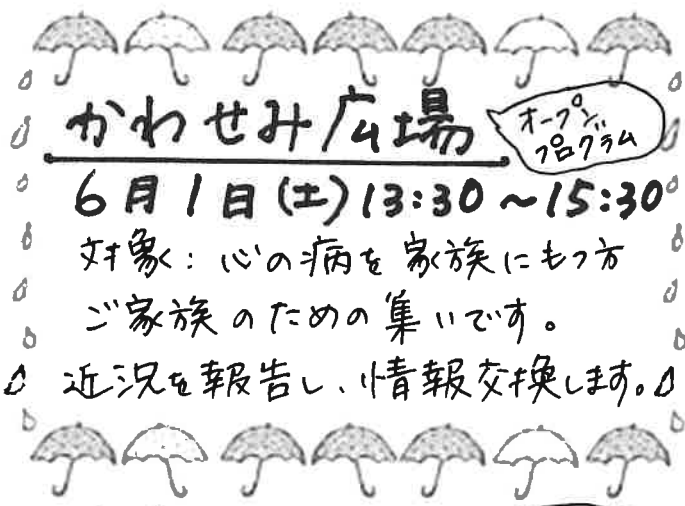 かわせみ広場
オープン
プログラム
6月1日(土)13:30～15:30
対象：心の病を家族にもつ方
ご家族のための集いです。
近況を報告し、情報交換します。